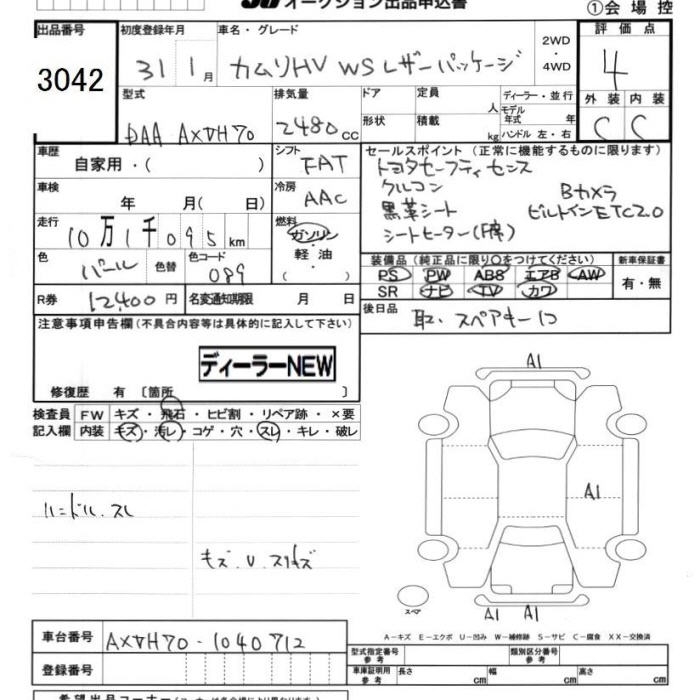 オークション出品申込書
①会場控
出品番号 初度登録年月 車名・グレード 評価点
3042 31 1月 カムリHV WSレザーパッケージ 2WD・4WD 4
型式 排気量 ドア 定員 人 ディーラー・並行 外装 内装
DAA AXVH70 2480cc 形状 積載 kg モデル年式 年 ハンドル 左・右 C C
車歴 自家用・( ) シフト FAT セールスポイント (正常に機能するものに限ります)
トヨタセーフティセンス
車検 年 月( 日) 冷房 AAC クルコン Bカメラ
黒革シート ビルトインETC2.0
走行 10万1千095km 燃料 ガソリン・軽油・( ) シートヒーター(F席)
色 パール 色替 色コード 089 装備品 (純正品に限り○をつけてください) 新車保証書
PS PW ABS エアB AW 有・無
SR ナビ TV カワ
R券 12,400円 名変通知期限 月 日 後日品 取・スペアキー
注意事項申告欄 (不具合内容等は具体的に記入して下さい)
ディーラーNEW
修復歴 有 〔箇所 〕
検査員 FW キズ・飛石・ヒビ割・リペア跡・×要
記入欄 内装 キズ・汚レ・コゲ・穴・スレ・キレ・破レ
A1
A1
ハンドル.スレ
キズ.U.スリキズ
スペア
A1 A1
A−キズ E−エクボ U−凹み W−補修跡 S−サビ C−腐食 XX−交換済
車台番号 AXVH70-1040712 型式指定番号 参考 類別区分番号 参考
登録番号 車庫証明用 参考 長さ cm 幅 cm 高さ cm
希望出品コーナー